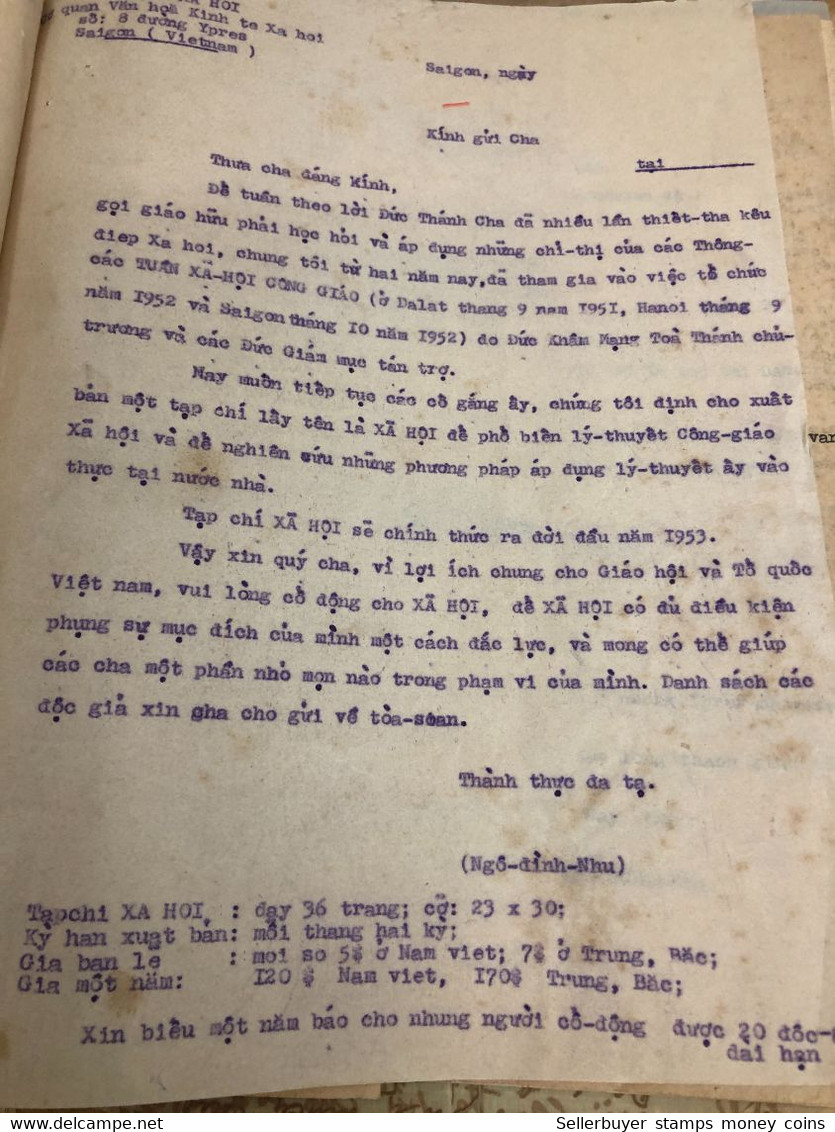 XA HOI
quan Văn hoá Kinh te Xa hoi
số: 8 đường Ypres
Saigon ( Vietnam )
Saigon, ngày
Kính gửi Cha
tại
Thưa cha đáng kính,
Để tuân theo lời Đức Thánh Cha đã nhiều lần thiết-tha kêu
gọi giáo hữu phải học hỏi và áp dụng những chỉ-thị của các Thông-
điep Xa hoi, chung tôi từ hai năm nay, đã tham gia vào việc tổ chức
các TUẦN XÃ-HỘI CÔNG GIÁO (ở Dalat thang 9 nam I95I, Hanoi tháng 9
năm I952 và Saigon tháng IO năm I952) do Đức Khâm Mạng Toà Thánh chủ-
trương và các Đức Giám mục tán trợ.
Nay muốn tiếp tục các cố gắng ấy, chúng tôi định cho xuất
bản một tạp chí lấy tên là XÃ HỘI để phổ biến lý-thuyết Công-giáo
Xã hội và để nghiên cứu những phương pháp áp dụng lý-thuyết ấy vào
thực tại nước nhà.
Tạp chí XÃ HỘI sẽ chính thức ra đời đầu năm I953.
Vậy xin quý cha, vì lợi ích chung cho Giáo hội và Tổ quốc
Việt nam, vui lòng cổ động cho XÃ HỘI, để XÃ HỘI có đủ điều kiện
phụng sự mục đích của mình một cách đắc lực, và mong có thể giúp
các cha một phần nhỏ mọn nào trong phạm vi của mình. Danh sách các
độc giả xin cha cho gửi về tòa-soạn.
Thành thực đa tạ.
(Ngô-đình-Nhu)
Tạpchi XA HOI, : dạy 36 trang; cỡ: 23 x 30;
Kỳ han xuạt bản: mỗi thang hai kỳ;
Gia bạn lẻ : moi so 5$ ở Nam viet; 7$ ở Trung, Bắc;
Gia một năm: I20 $ Nam viet, I70$ Trung, Bắc;
Xin biếu một năm báo cho nhung người cổ-động được 20 độc-
dài hạn
van
Sellerbuyer stamps money coins